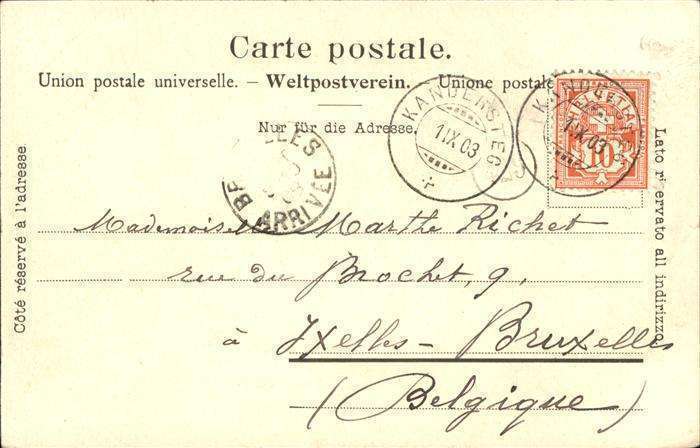 Carte postale.
Union postale universelle. — Weltpostverein. — Unione postale
Nur für die Adresse.
KANDERSTEG
1 IX 03
KANDERSTEG
1 IX 03
HELVETIA
10
ARRIVÉE
Côté réservé à l'adresse.
Lato riservato all indirizzo
Mademoiselle Marthe Richet
rue du Brochet, 9,
à Ixelles - Bruxelles
(Belgique)